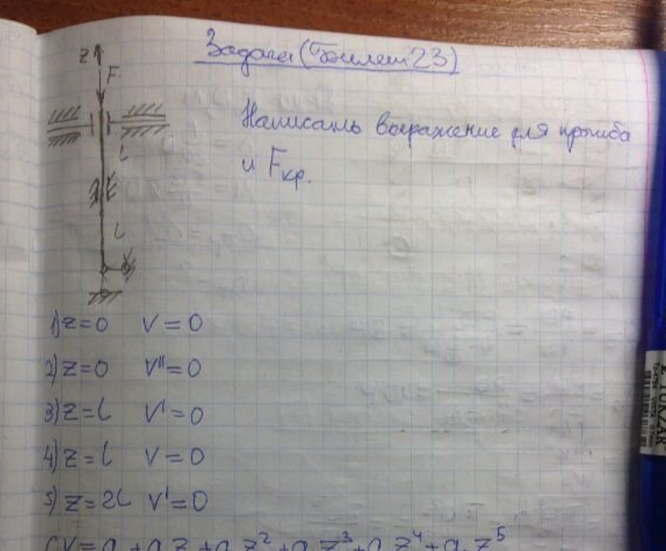 Задача (Билет 23)
z
F
Написать выражение для прогиба
и Fкр.
l
l
1) z=0 V=0
2) z=0 V''=0
3) z=l V'=0
4) z=l V=0
5) z=2l V'=0
V=a +a z+a z² +a z³ +a z⁴ +a z⁵